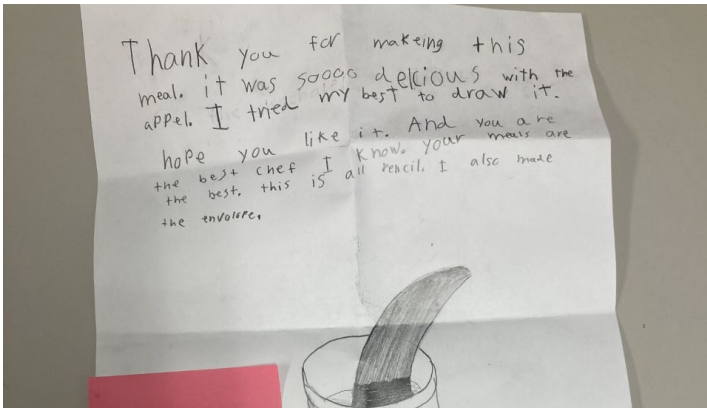 Thank you for makeing this
meal. it was soooo delcious with the
appel. I tried my best to draw it.
hope you like it. And you are
the best chef I know. your meals are
the best. this is all pencil. I also made
the envolope.